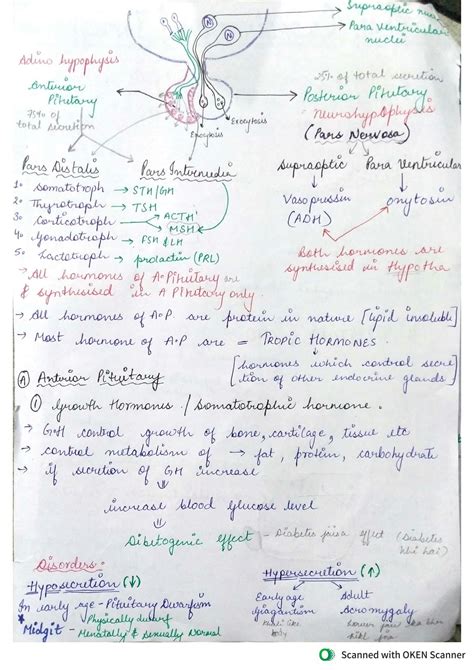 Supraoptic
Para Ventricular
nuclei
N
N
Adino hypophysis
Anterior
Pituitary
75% of
total secretion
25% of total secretion
Posterior Pituitary
Neurohypophysis
(Pars Nervosa)
Exocytosis
Exocytosis
Pars Distalis
Pars Intermedia
Supraoptic
Para Ventricular
1. Somatotroph → STH/GH
2. Thyrotroph → TSH
3. Corticotroph → ACTH
MSH
4. Gonadotroph → FSH & LH
5. Lactotroph → prolactin (PRL)
Vasopressin
(ADH)
oxytosin
Both hormones are
synthesised in Hypotha
→ All hormones of A. Pituitary are
& synthesised in A Pituitary only.
→ All hormones of A.P. are protein in nature [lipid insoluble]
→ Most hormone of A.P are = TROPIC HORMONES.
[hormones which control secre
tion of other endocrine glands]
(A) Anterior Pituitary
(1) Growth Hormones / Somatotrophic hormone.
→ GH control growth of bone, cartilage, tissue etc
→ control metabolism of → fat, protein, carbohydrate
→ if secretion of GH increase
increase blood glucose level
Dibetogenic effect - Diabetes jaisa effect (Diabetes
nhi hai)
Disorders:
Hyposecretion (↓)
Hypersecretion (↑)
In early age - Pituitary Dwarfism
Early age
Adult
* Midgit - Physically dwarf
Gigantism
Acromygaly
- Menatally & Sexually Normal
body
Scanned with OKEN Scanner